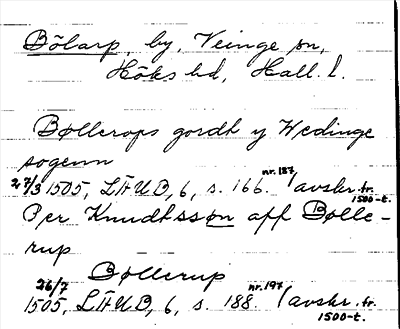 Bölarp, by, Veinge sn,
Höks hd, Hall. l.
Bøllerops gordh y Wedinge
sogenn
27/3 1505, LÄUB, 6, s. 166. nr. 187 (avskr. fr. 1500-t.
Per Knudhssøn aff Bølle-
rup
Bøllerup
26/7 1505, LÄUB, 6, s. 188. nr. 197 (avskr. fr. 1500-t.